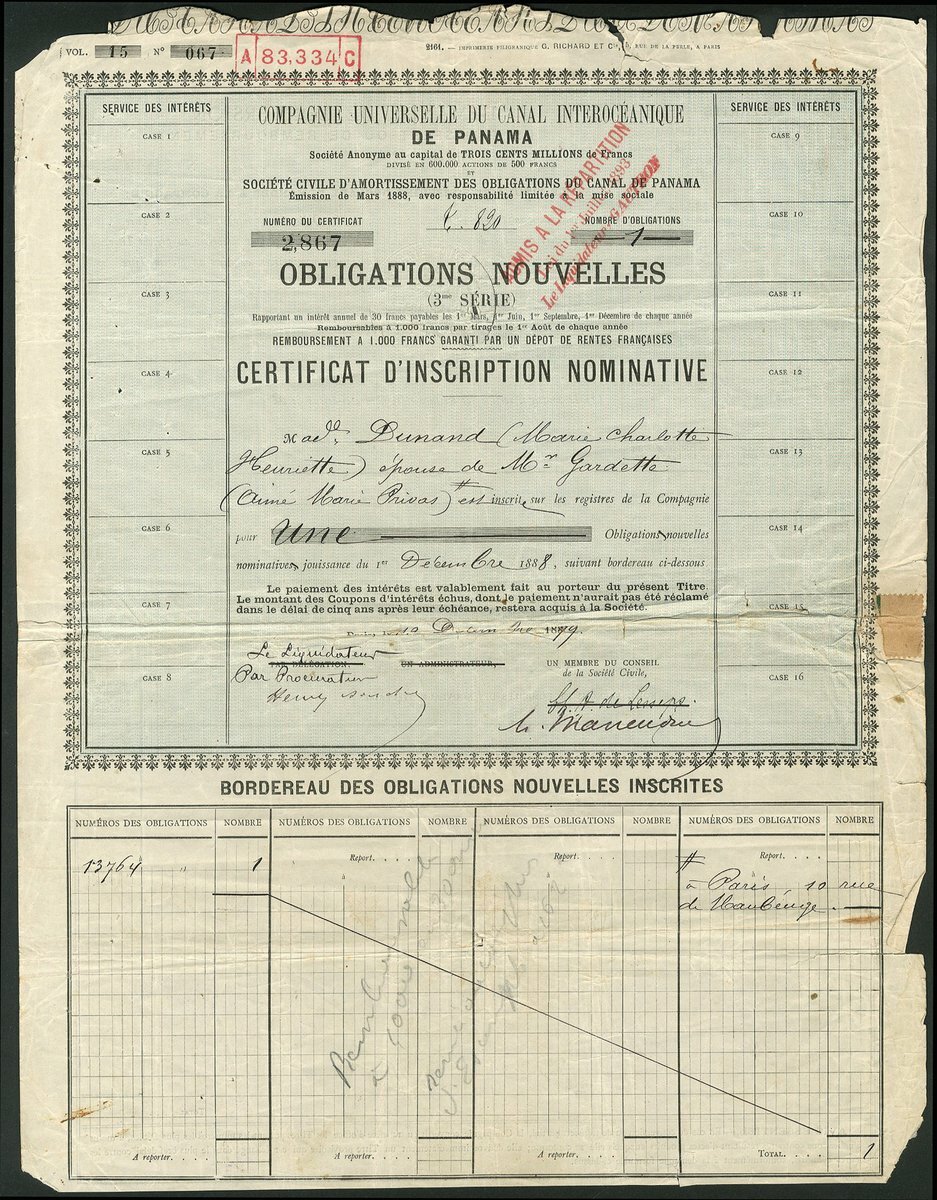 VOL. 15 N° 067
A 83,334 C
2161. — IMPRIMERIE FILIGRANIQUE G. RICHARD ET Cie, 5, RUE DE LA PERLE, A PARIS
SERVICE DES INTÉRÊTS
CASE 1
CASE 2
CASE 3
CASE 4
CASE 5
CASE 6
CASE 7
CASE 8
COMPAGNIE UNIVERSELLE DU CANAL INTEROCÉANIQUE
DE PANAMA
Société Anonyme au capital de TROIS CENTS MILLIONS de Francs
DIVISÉ EN 600.000 ACTIONS DE 500 FRANCS
ET
SOCIÉTÉ CIVILE D'AMORTISSEMENT DES OBLIGATIONS DU CANAL DE PANAMA
Émission de Mars 1888, avec responsabilité limitée à la mise sociale
NUMÉRO DU CERTIFICAT
2,867
820
NOMBRE D'OBLIGATIONS
1
ADMIS A LA REPARTITION
Loi du 1er Juillet 1893
Le Liquidateur
OBLIGATIONS NOUVELLES
(3me SÉRIE)
Rapportant un intérêt annuel de 30 francs payables les 1er Mars, 1er Juin, 1er Septembre, 1er Décembre de chaque année
Remboursables à 1.000 francs par tirages le 1er Août de chaque année
REMBOURSEMENT A 1.000 FRANCS GARANTI PAR UN DÉPOT DE RENTES FRANÇAISES
CERTIFICAT D'INSCRIPTION NOMINATIVE
Made Dunand (Marie Charlotte
Henriette) épouse de Mr Gardette
(Aimé Marie Privas) # est inscrit, sur les registres de la Compagnie
pour Une Obligations nouvelles
nominatives jouissance du 1er Décembre 1888, suivant bordereau ci-dessous
Le paiement des intérêts est valablement fait au porteur du présent Titre.
Le montant des Coupons d'intérêts échus, dont le paiement n'aurait pas été réclamé
dans le délai de cinq ans après leur échéance, restera acquis à la Société.
Le Liquidateur
PAR DÉLÉGATION,
Par Procuration
UN ADMINISTRATEUR,
UN MEMBRE DU CONSEIL
de la Société Civile,
Ch. A. de Lesseps
SERVICE DES INTÉRÊTS
CASE 9
CASE 10
CASE 11
CASE 12
CASE 13
CASE 14
CASE 15
CASE 16
BORDEREAU DES OBLIGATIONS NOUVELLES INSCRITES
NUMÉROS DES OBLIGATIONS NOMBRE NUMÉROS DES OBLIGATIONS NOMBRE NUMÉROS DES OBLIGATIONS NOMBRE NUMÉROS DES OBLIGATIONS NOMBRE
13764 1
Report.... Report.... Report....
à
# à Paris, 10 rue
de Maubeuge.
A reporter... A reporter... A reporter... TOTAL.... 1